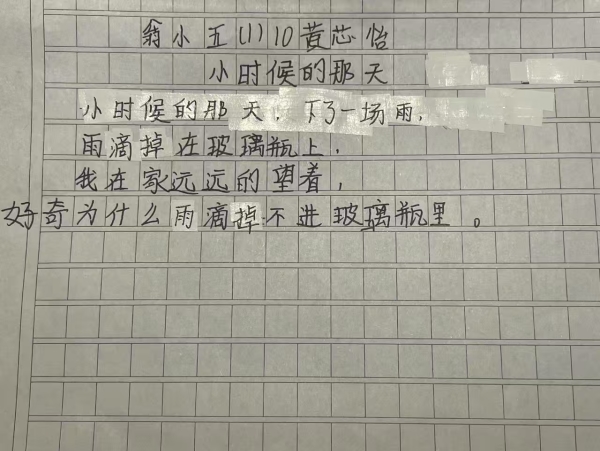 翁小五(1)10黄芯怡
小时候的那天
小时候的那天，下了一场雨，
雨滴掉在玻璃瓶上，
我在家远远的望着，
好奇为什么雨滴掉不进玻璃瓶里。